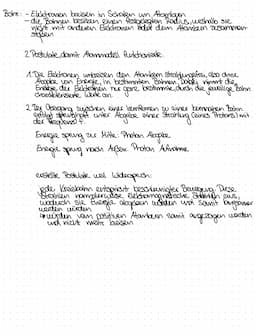 Bohr: - Elektronen kreisen in Schalen um Atomkern
- die Bahnen besitzen einen festgelegten Radius, weshalb sie
nicht mit anderen Elektronen oder dem Atomkern zusammen-
stoßen
2 Postulate, damit Atommodell funktioniert
1. Die Elektronen umkreisen den Atomkern strahlungsfrei, also ohne
Abgabe von Energie, in bestimmten Bahnen. Dabei nimmt die
Energie der Elektronen nur ganz bestimmte, durch die jeweilige Bahn
Werte an.
2. Der Übergang zwischen einer kernfernen zu einer kernnahen Bahn
erfolgt sprunghaft unter Abgabe einer Strahlung (eines Photons) mit
der Frequenz f.
Energie sprung zur Mitte: Photon Abgabe
Energie sprung nach Außen: Photon Aufnahme
erstelle Postulate weil Widerspruch:
jede Kreisbahn entspricht beschleunigter Bewegung. Diese
Elektronen elektromagnetische Strahlung aus,
wodurch sie Energie abgeben würden und somit langsamer
werden würden
→ würden vom positiven Atomkern somit angezogen werden
und nicht mehr kreisen